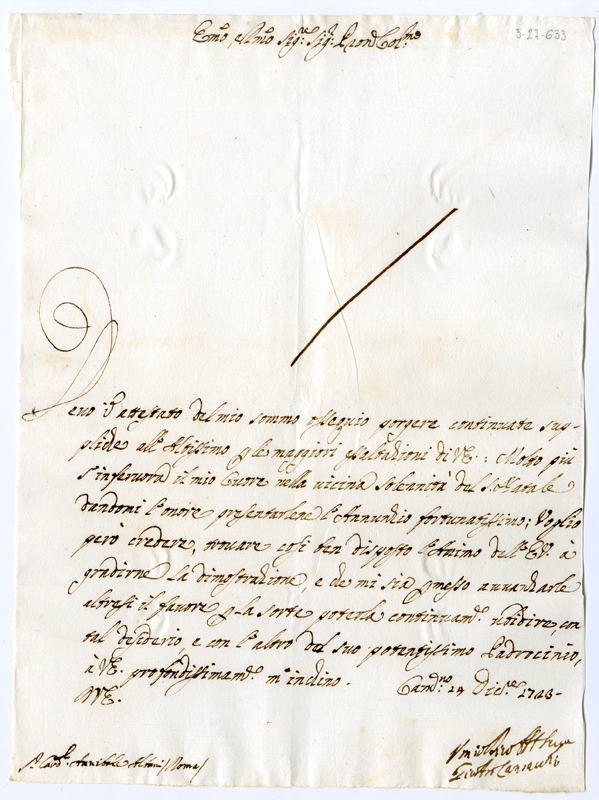 Emo, e Rmo Sigre, Sigr Pron Colmo
3-27-633
Devo in attestato del mio sommo ossequio porgere continuate sup-
pliche all' Altissimo p le maggiori esaltazioni di VE.: Molto più
s'infervora il mio Cuore nella vicina solennità del So Natale
dandomi l'onore presentarlene l'Annunzio fortunatissimo; Voglio
però credere, trovare così ben disposto l'Animo dell' EV. à
gradirne la dimostrazione, e che mi sia pmesso avvanzarle
altresì il favore p la sorte poterla continuamte ubidire, con
tal desiderio, e con l'altro del suo potentissimo Padrocinio,
à VE. profondissimamte m'inchino.
Camno 14 Dicre 1723-
DVE.
Sr Cardl Annibale Albani / Roma /
Umilmo